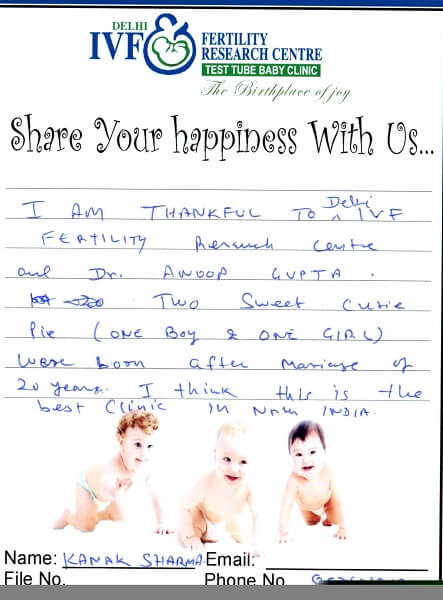 DELHI
IVF & FERTILITY
RESEARCH CENTRE
TEST TUBE BABY CLINIC
The Birthplace of joy
Share Your happiness With Us...
I AM THANKFUL TO Delhi IVF
FERTILITY Research Centre
and Dr. ANOOP GUPTA.
TWO Sweet Cutie
Pie (ONE Boy & ONE GIRL)
Were born after Marriage of
20 years. I think this is the
best Clinic in North INDIA.
Name: KANAK SHARMA Email:
File No. Phone No.